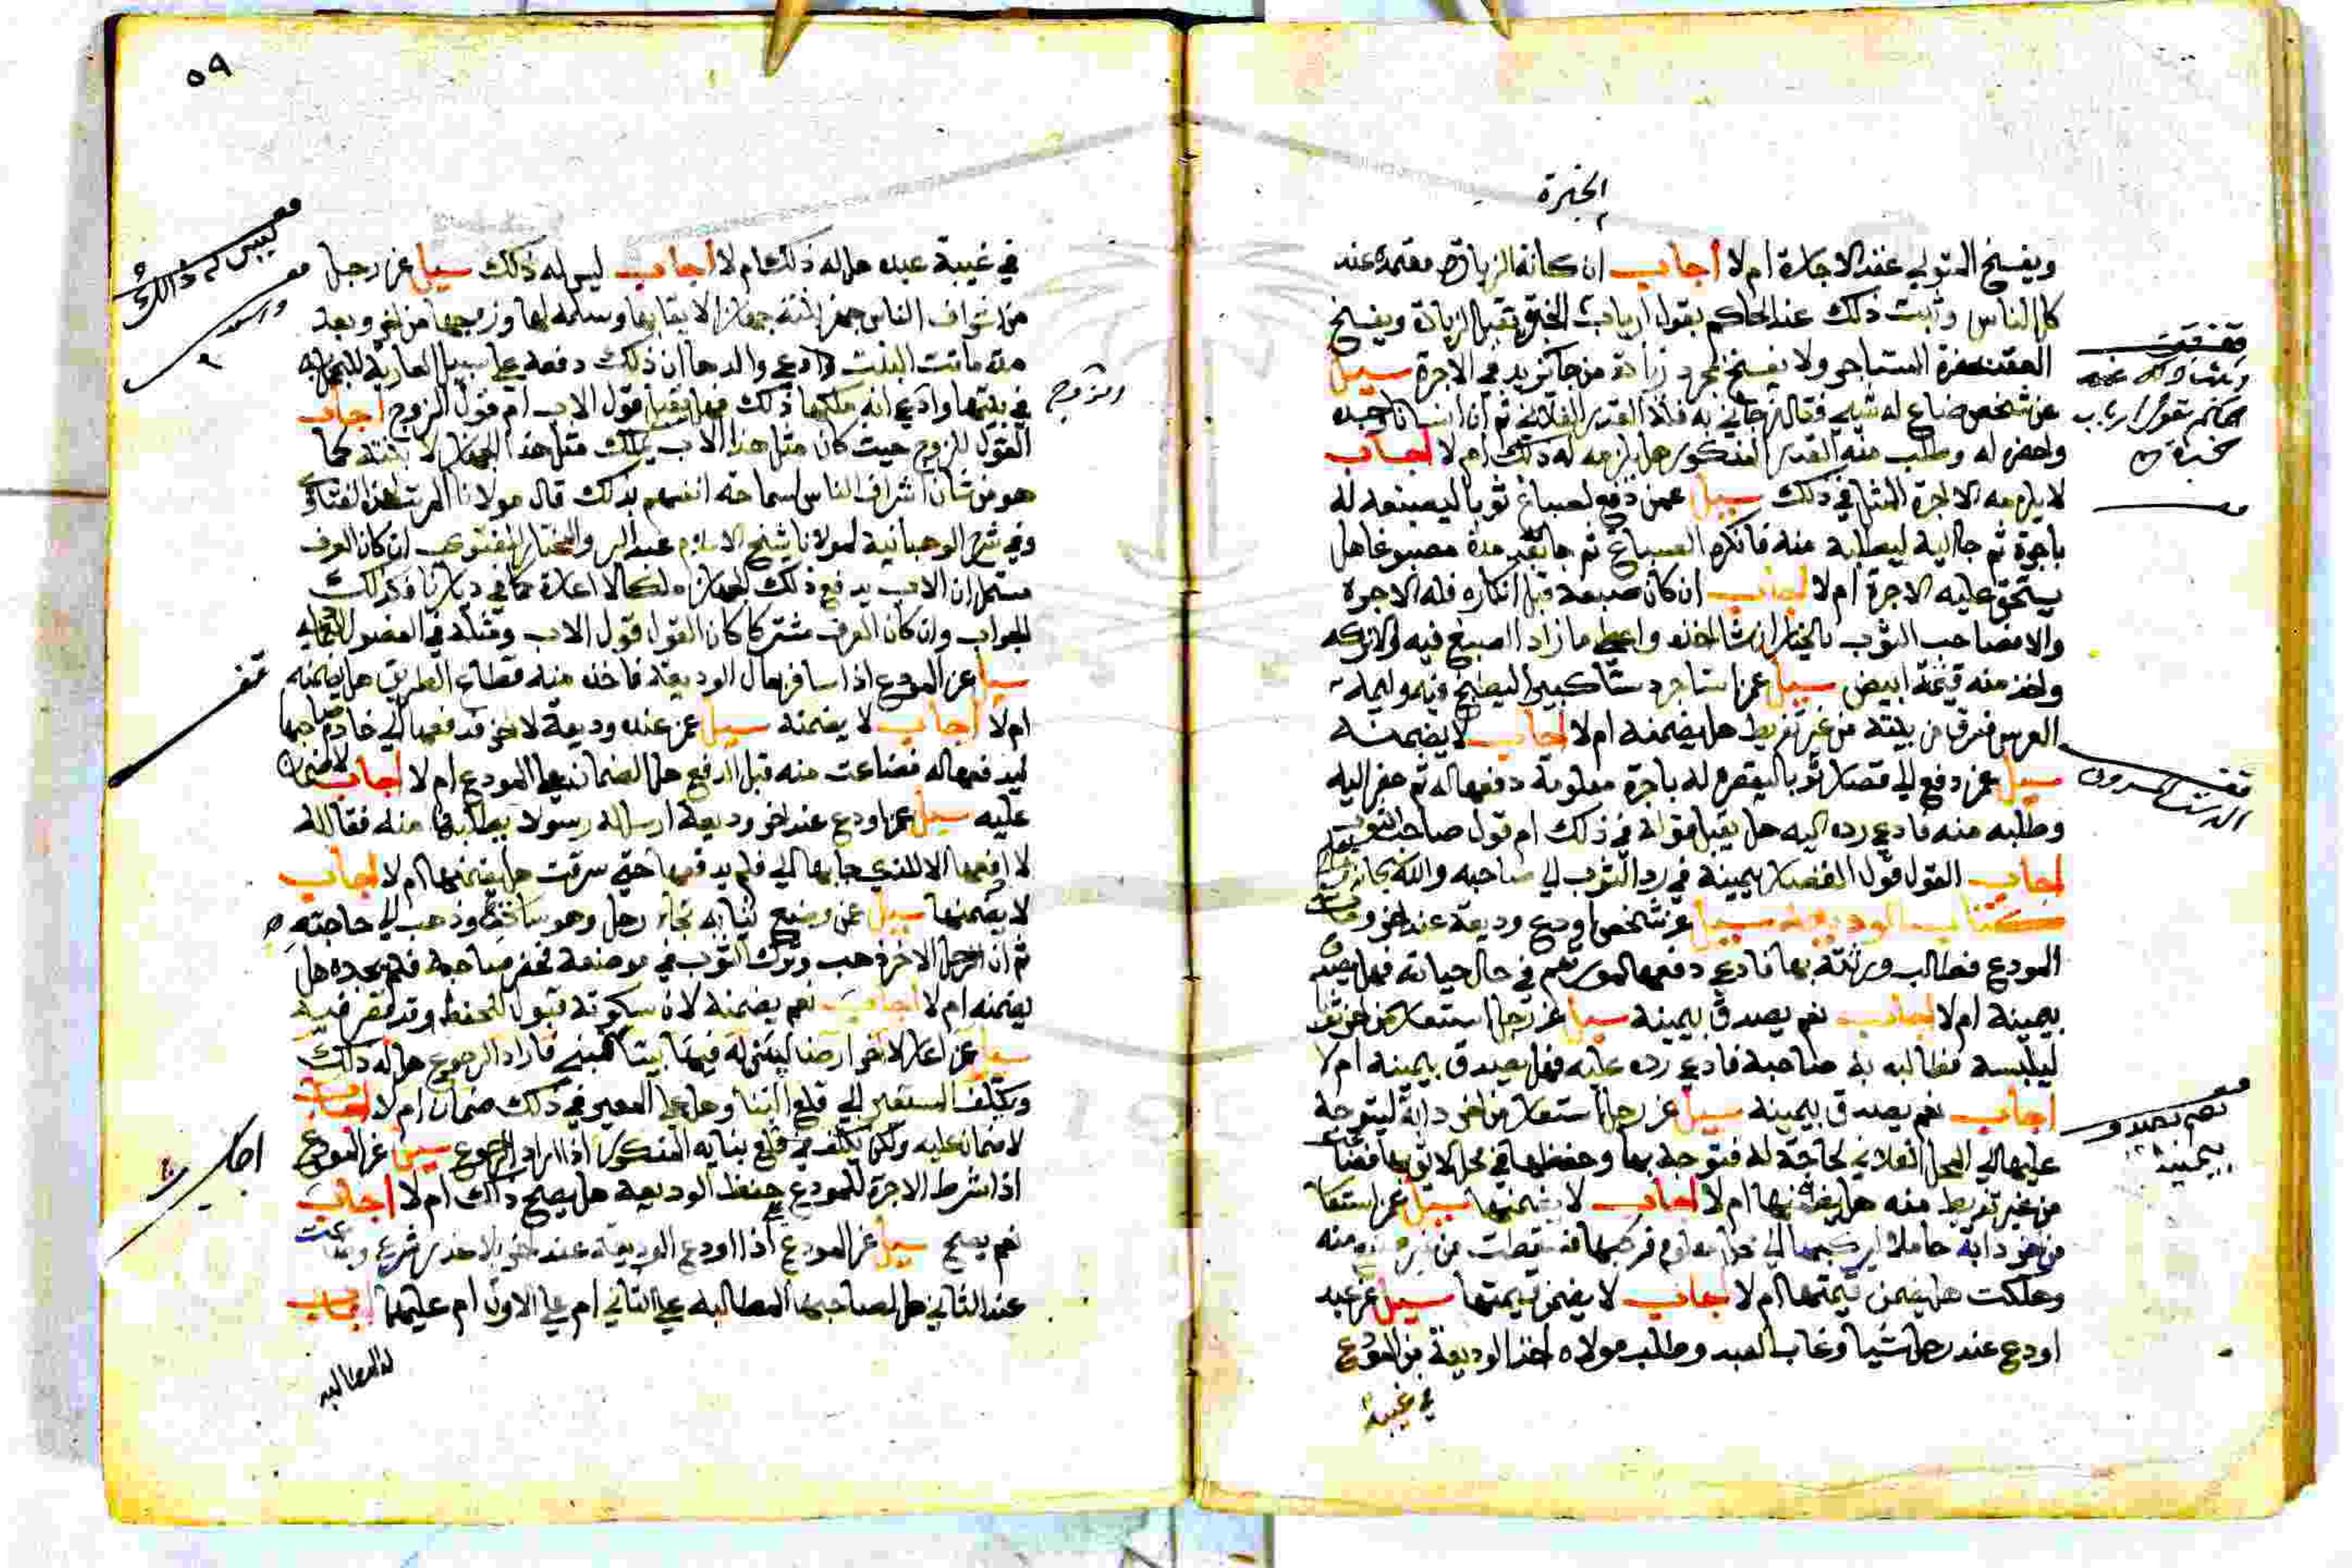 الخبرة
ويفسخ المتولي عقد الاجارة ام لا اجاب ان كانة الزيادة معتمدة عند
كل الناس وثبت ذلك عند الحاكم بقول ارباب الخبرة تقبل الزيادة ويفسخ
العقد المستاجر ولا يفسخ بمجرد زيادة من جا يزيد في الاجرة سيل
عن شخص ضاع له شيي فقال من جاني به فله القدر الفلاني ثم ان انسانا وجده
واحضره له وطلب منه القدر المذكور هل يلزمه له ذلك ام لا اجاب
لا يلزمه الا اجرة المثل في ذلك سيل عمن دفع لصباغ ثوبا ليصبغه له
باجرة ثم جا اليه ليطلبه منه فانكره الصباغ ثم جا بعد مدة مصبوغا هل
يستحق عليه الاجرة ام لا اجاب ان كان صبغه قبل انكاره فله الاجرة
والا فصاحب الثوب بالخيار ان شا اخذه واعطى ما زاد الصبغ فيه والا تركه
واخذ منه قيمة ابيض سيل عمن استاجر دستا كبيرا ليطبخ فيه وليمة
العرس فسرق من بيته من غير تفريط هل يضمنه ام لا اجاب لا يضمنه
سيل عمن دفع الي قصار ثوبا ليقصره له باجرة معلومة دفعها له ثم حضر اليه
وطلبه منه فادعى رده اليه هل يقبل قوله في ذلك ام قول صاحب الثوب
اجاب القول قول القصار بيمينه في رد الثوب الي صاحبه والله
كتاب الوديعة سيل عن شخص اودع وديعة عند اخر ومات
المودع فطالب ورثته بها فادعى دفعها لمورثهم في حال حياته فهل يصدق
بيمينه ام لا اجاب نعم يصدق بيمينه سيل عن رجل استعار من اخر ثوبا
ليلبسه فطالبه به صاحبه فادعى رده عليه فهل يصدق بيمينه ام لا
اجاب نعم يصدق بيمينه سيل عن رجل استعار من اخر دابة ليتوجه
عليها الي المحل الفلاني لحاجة له فتوجه بها وحفظها في محل لائق بها فضاعت
من غير تفريط منه هل يضمنها ام لا اجاب لا يضمنها سيل عمن استعار
من اخر دابة حاملا ليركبها الي محل معلوم فركبها فسقطت من غير منه
وهلكت هل يضمن قيمتها ام لا اجاب لا يضمن قيمتها سيل عن عبد
اودع عند رجل شيا وغاب العبد وطلب مولاه اخذ الوديعة من المودع
في غيبة
نعم يصدق
بيمينه
٥٩
في غيبة عبده هل له ذلك ام لا اجاب ليس له ذلك سيل عن رجل
من اشراف الناس جهز ابنته جهازا لا يقا بها وسلمه لها وزوجها من اخر وبعد
مدة ماتت البنت وادعى والدها ان ذلك دفعه على سبيل العارية
في بيتها وادعى انه ملكها ذلك فهل يقبل قول الاب ام قول الزوج اجاب
القول للزوج حيث كان مثل هذا الاب يملك مثل هذا الجهاز لابنته كما
هو من شان اشراف الناس لسماحة انفسهم بذلك قال مولانا المرتب لهذه الفتاوى
وفي شرح الوهبانية لمولانا شيخ الاسلام عبد البر والمختار للفتوى ان كان العرف
مستمرا ان الاب يدفع ذلك الجهاز ملكا لا اعارة كما في ديارنا فكذلك
الجواب وان كان العرف مشتركا كان القول قول الاب ومثله في الفصول
سيل عن المودع اذا سافر بمال الوديعة فاخذه منه قطاع الطريق هل يضمنه
ام لا اجاب لا يضمنه سيل عمن عنده وديعة لاخر فدفعها الي خادم صاحبها
ليدفعها له فضاعت منه قبل الدفع هل الضمان على المودع ام لا اجاب لا ضمان
عليه سيل عمن اودع عند اخر وديعة ارسل له رسولا يطالبه بها منه فقال له
لا ادفعها الا للذي جا بها الي فلم يدفعها حتى سرقت هل يضمنها ام لا اجاب
لا يضمنها سيل عمن وضع ثيابه تجاه رجل وهو ساكت وذهب الي حاجته
ثم ان الرجل الاخر ذهب وترك الثوب في موضعه فحضر صاحبه فلم يجده هل
يضمنه ام لا اجاب نعم يضمنه لان سكوته قبول للحفظ وقد قصر فيه
سيل عمن اعار لاخر ارضا ليبني له فيها بيتا فبنى فاراد الرجوع هل له ذلك
ويكلف المستعير الي قلع البنا وهل على المعير في ذلك ضمان ام لا اجاب
لا ضمان عليه ولكن يكلف في قلع بنايه المذكور اذا اراد الرجوع سيل عن المودع
اذا شرط الاجرة للمودع على حفظ الوديعة هل يصح ذلك ام لا اجاب
نعم يصح سيل عن المودع اذا اودع الوديعة عند اخر بلا عذر شرعي وضاعت
عند الثاني هل لصاحبها المطالبة على الثاني ام على الاول ام عليهما اجاب
له المطالبه
والزوج
ليس له ذالك